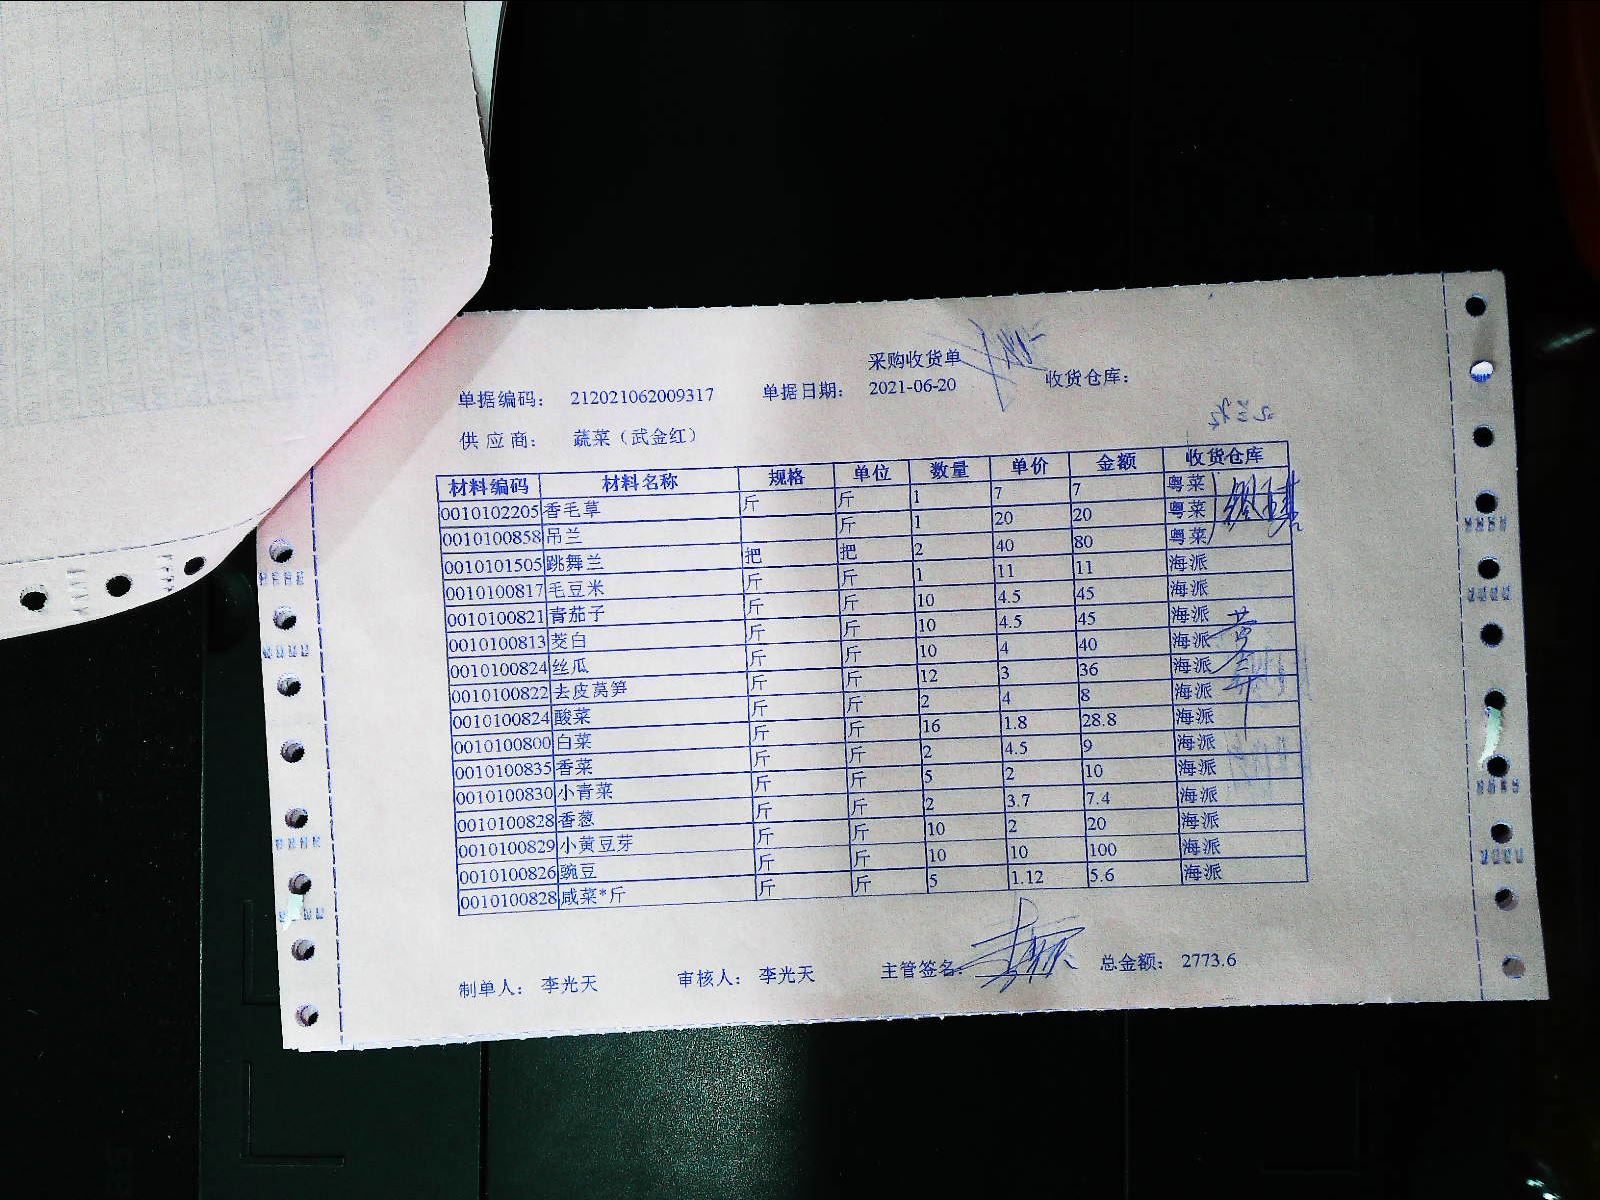 采购收货单
单据编码： 212021062009317 单据日期： 2021-06-20 收货仓库：
供 应 商： 蔬菜（武金红）
材料编码 材料名称 规格 单位 数量 单价 金额 收货仓库
0010102205 香毛草 斤 斤 1 7 7 粤菜
0010100858 吊兰 斤 1 20 20 粤菜
0010101505 跳舞兰 把 把 2 40 80 粤菜
0010100817 毛豆米 斤 斤 1 11 11 海派
0010100821 青茄子 斤 斤 10 4.5 45 海派
0010100813 茭白 斤 斤 10 4.5 45 海派
0010100824 丝瓜 斤 斤 10 4 40 海派
0010100822 去皮莴笋 斤 斤 12 3 36 海派
0010100824 酸菜 斤 斤 2 4 8 海派
0010100800 白菜 斤 斤 16 1.8 28.8 海派
0010100835 香菜 斤 斤 2 4.5 9 海派
0010100830 小青菜 斤 斤 5 2 10 海派
0010100828 香葱 斤 斤 2 3.7 7.4 海派
0010100829 小黄豆芽 斤 斤 10 2 20 海派
0010100826 豌豆 斤 斤 10 10 100 海派
0010100828 咸菜*斤 斤 斤 5 1.12 5.6 海派
制单人： 李光天 审核人： 李光天 主管签名： 总金额： 2773.6